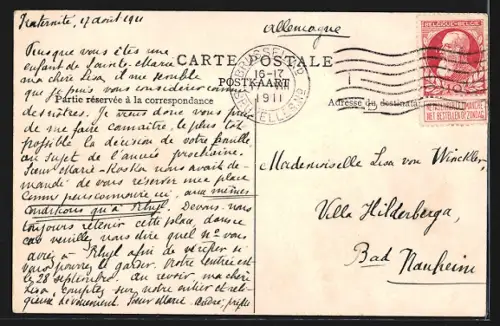 Fraternité, 17 août 1911
Puisque vous êtes une
enfant de Sainte-Marie,
ma chère Lisa, il me semble
que je puis vous considérer comme
des nôtres. Je viens donc vous prier
de me faire connaître, le plus tôt
possible la décision de votre famille
au sujet de l'année prochaine.
Sœur Marie-Rostka nous avait de-
mandé de vous réserver une place
comme pensionnaire ici, aux mêmes
conditions qu'à Rhyl. Devons-nous
toujours retenir cette place dans ce
cas veuillez nous dire quel n° vous
aviez à Rhyl afin de vérifier si
vous pourrez le garder. Notre rentrée est
le 28 septembre. Au revoir, ma chère
Lisa, comptez sur notre entier et reli-
gieux dévouement. Sœur Marie
Allemagne
CARTE POSTALE
POSTKAART
Partie réservée à la correspondance
Adresse du destinataire
BRUXELLES
16-17
1911
BRUSSEL
BELGIQUE·BELGIË
NE PAS LIVRER LE DIMANCHE
NIET BESTELLEN OP ZONDAG
Mademoiselle Lisa von Winckler,
Villa Hilderberga,
Bad Nauheim